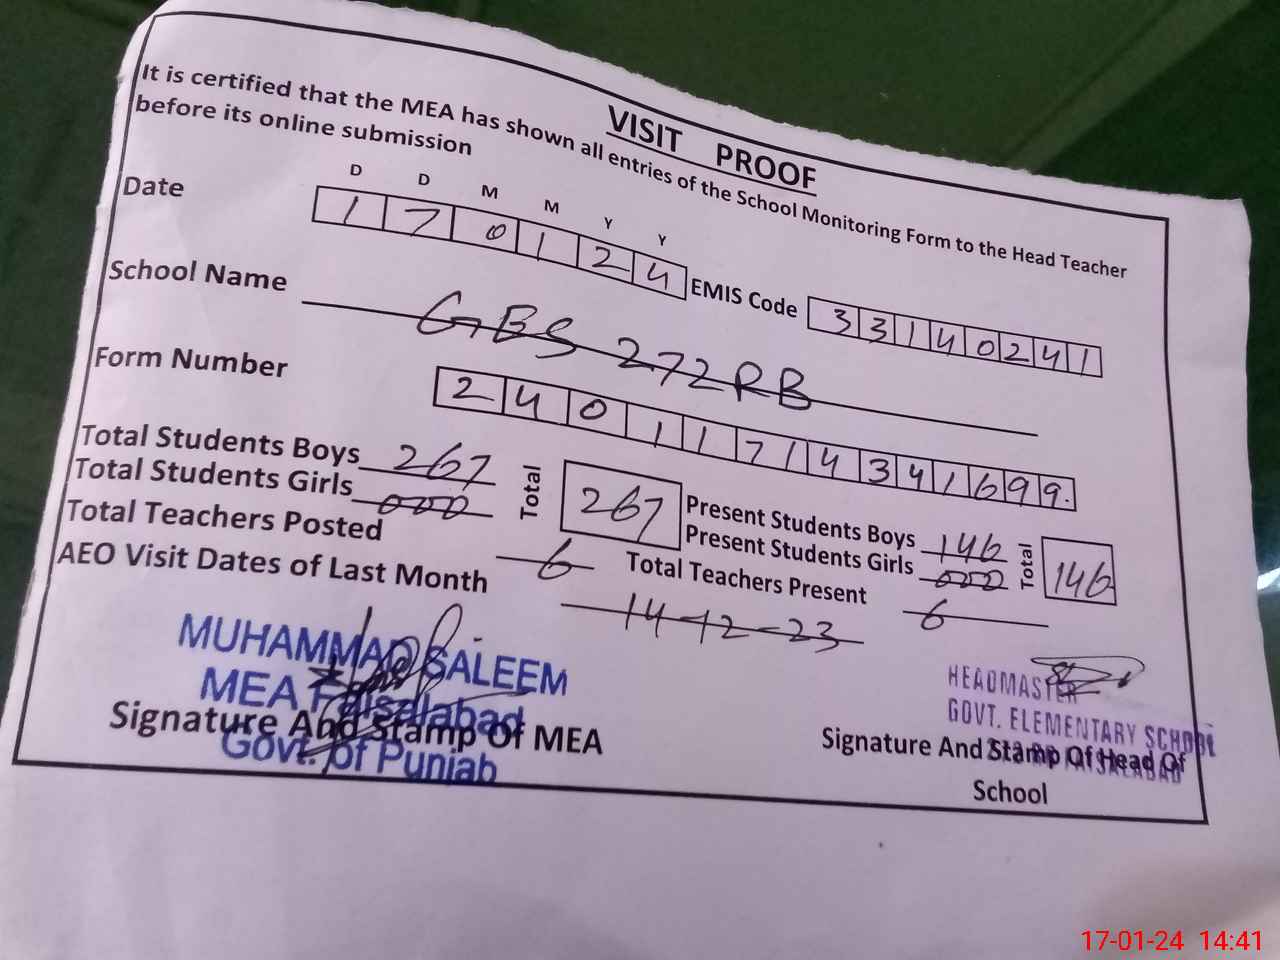 VISIT PROOF
It is certified that the MEA has shown all entries of the School Monitoring Form to the Head Teacher
before its online submission
D D M M Y Y
Date 1 7 0 1 2 4 EMIS Code 3 3 1 4 0 2 4 1
School Name GES 272 RB
Form Number 2 4 0 1 1 7 1 4 3 4 1 6 9 9
Total Students Boys 267 Total 267 Present Students Boys 146 Total 146
Total Students Girls 000 Present Students Girls 000
Total Teachers Posted 6 Total Teachers Present 6
AEO Visit Dates of Last Month 14-12-23
MUHAMMAD SALEEM
MEA Faisalabad
Govt. of Punjab
Signature And Stamp Of MEA
HEADMASTER
GOVT. ELEMENTARY SCHOOL
FAISALABAD
Signature And Stamp Of Head Of
School
17-01-24 14:41